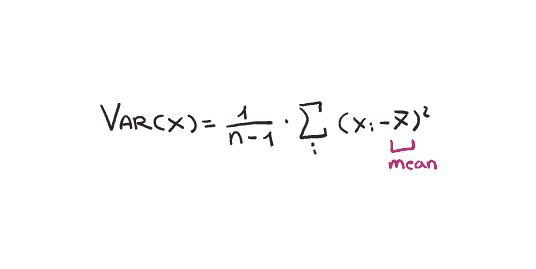 VAR(X) = 1/(n-1) · Σᵢ (xᵢ - x̄)²
mean